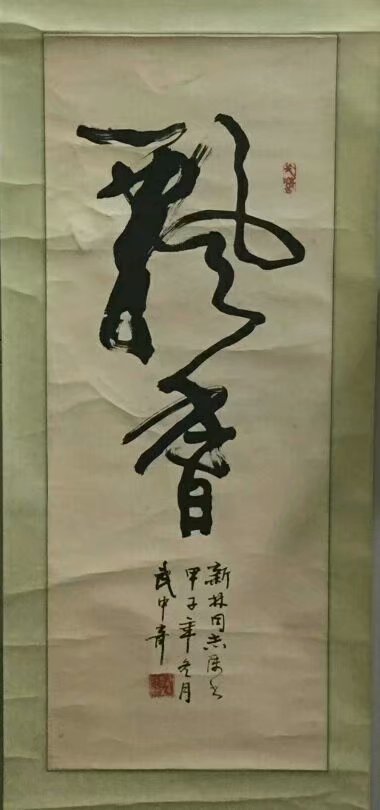 飘香
新林同志属书
甲子年冬月
武中奇